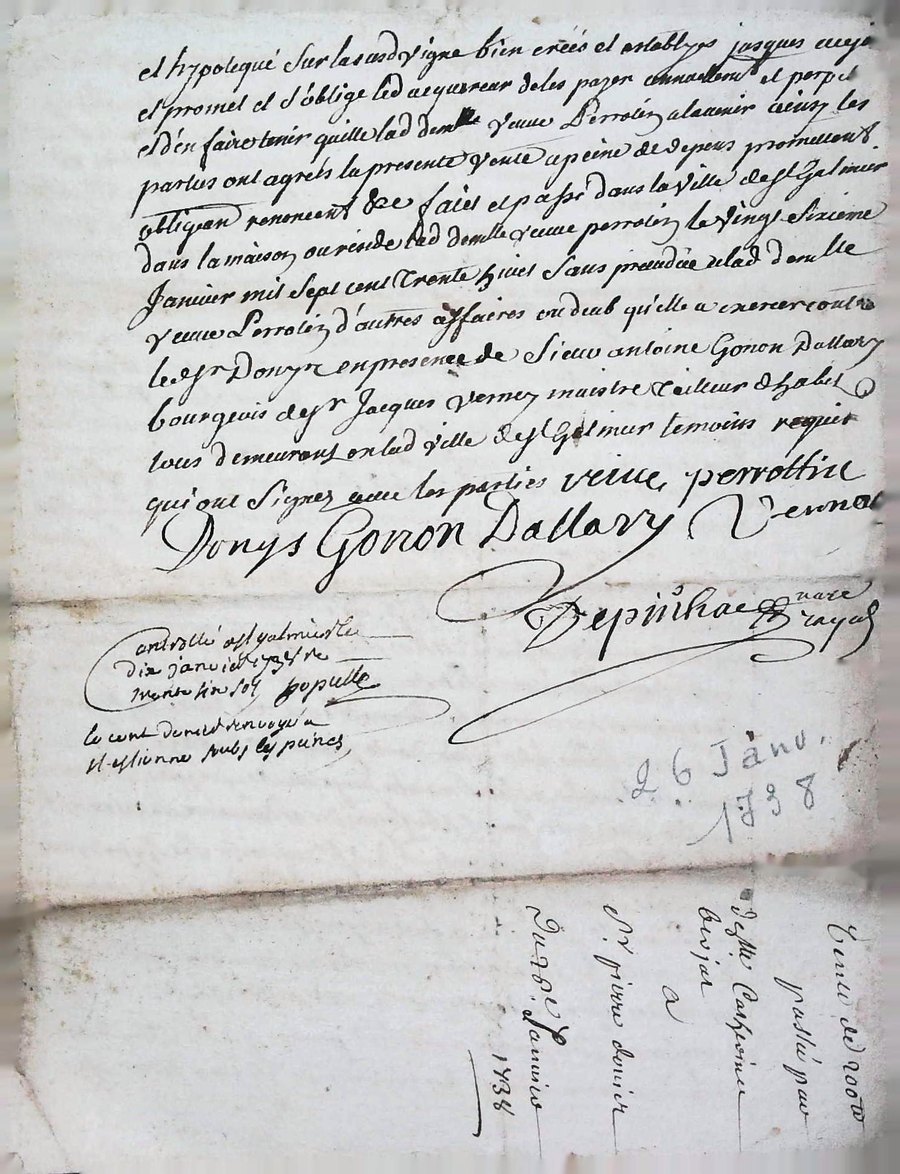 et hypotequé sur lasusd vigne bien créés et establyes jusques aceja
et promet et s'oblige led acquereur deles payer annuellemt et perpet
et d'en faire tenir quitte lad demlle veuve Perrotin alavenir ainsy les
parties ont agréé la presente vente apeine de depens promettent
obligean renoncent &c faict et passé dans la ville de st Galmier
dans la maison ou reside lad demlle veuve perrotin le vingt sixieme
Janvier mil sept cent trente huict sans prejudice alad demlle
veuve Perrotin d'autres affaires ou deub qu'elle a exercer contre
led sr Donys en presence de Sieur antoine Gonon Dallary
bourgeois de sr Jacques Verney maistre tailleur d'habit
tous demeurant en lad ville de st Galmier temoins requis
qui ont signez avec les parties veuve perrottin
Donys Gonon Dallary Verna
Depiuhac nore royal
controllé a st galmier le
dix janvier 1738 re
trente sin sol populle
le cent denier renvoyé a
st estienne soubs les peines
26 Janv.
1738
Vente de 200tt
passée par
deslle Catherine
berjat
a
sr. pierre donier
Du 26e. Janvier
1738